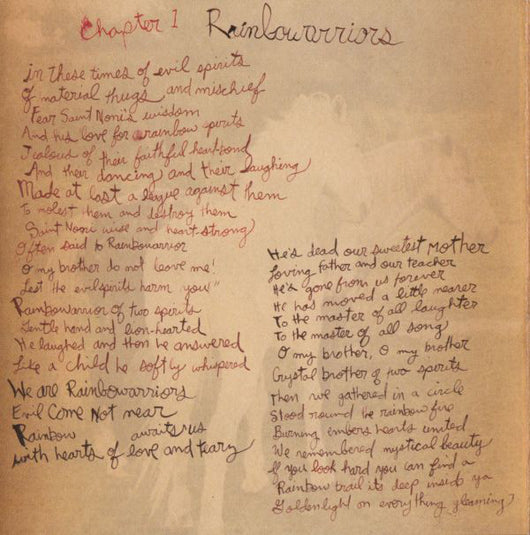 Chapter 1 Rainbowarriors
in these times of evil spirits
Of material thugs and mischief
Fear Saint Noni's wisdom
And his love for rainbow spirits
Jealous of their faithful heartsong
And their dancing and their laughing
Made at last a league against them
To molest them and destroy them
Saint Noni wise and heart-strong
Often said to Rainbowarrior
O my brother do not leave me!
Lest the evil spirits harm you"
Rainbowarrior of two spirits
Gentle hand and lion-hearted
He laughed and then he answered
Like a child he softly whispered
We are Rainbowarriors
Evil Come Not near
Rainbow awaits us
with hearts of love and teary
He's dead our sweetest Mother
Loving Father and our teacher
He's gone from us forever
He has moved a little nearer
To the master of all laughter
To the master of all song
O my brother, O my brother
Crystal brother of two spirits
then we gathered in a circle
Stood round the rainbow fire
Burning embers hearts united
We remembered mystical beauty
If you look hard you can find a
Rainbow trail its deep inside ya
Goldenlight on everything gleaming